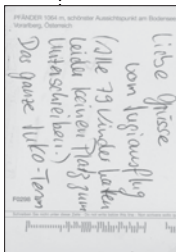 PFÄNDER 1064 m, schönster Aussichtspunkt am Bodensee
Vorarlberg, Österreich
Liebe Grüsse
vom Jugiausflug
(Alle 79 Kinder hatten
leider keinen Platz zum
Unterschreiben.)
Das ganze Juko-Team